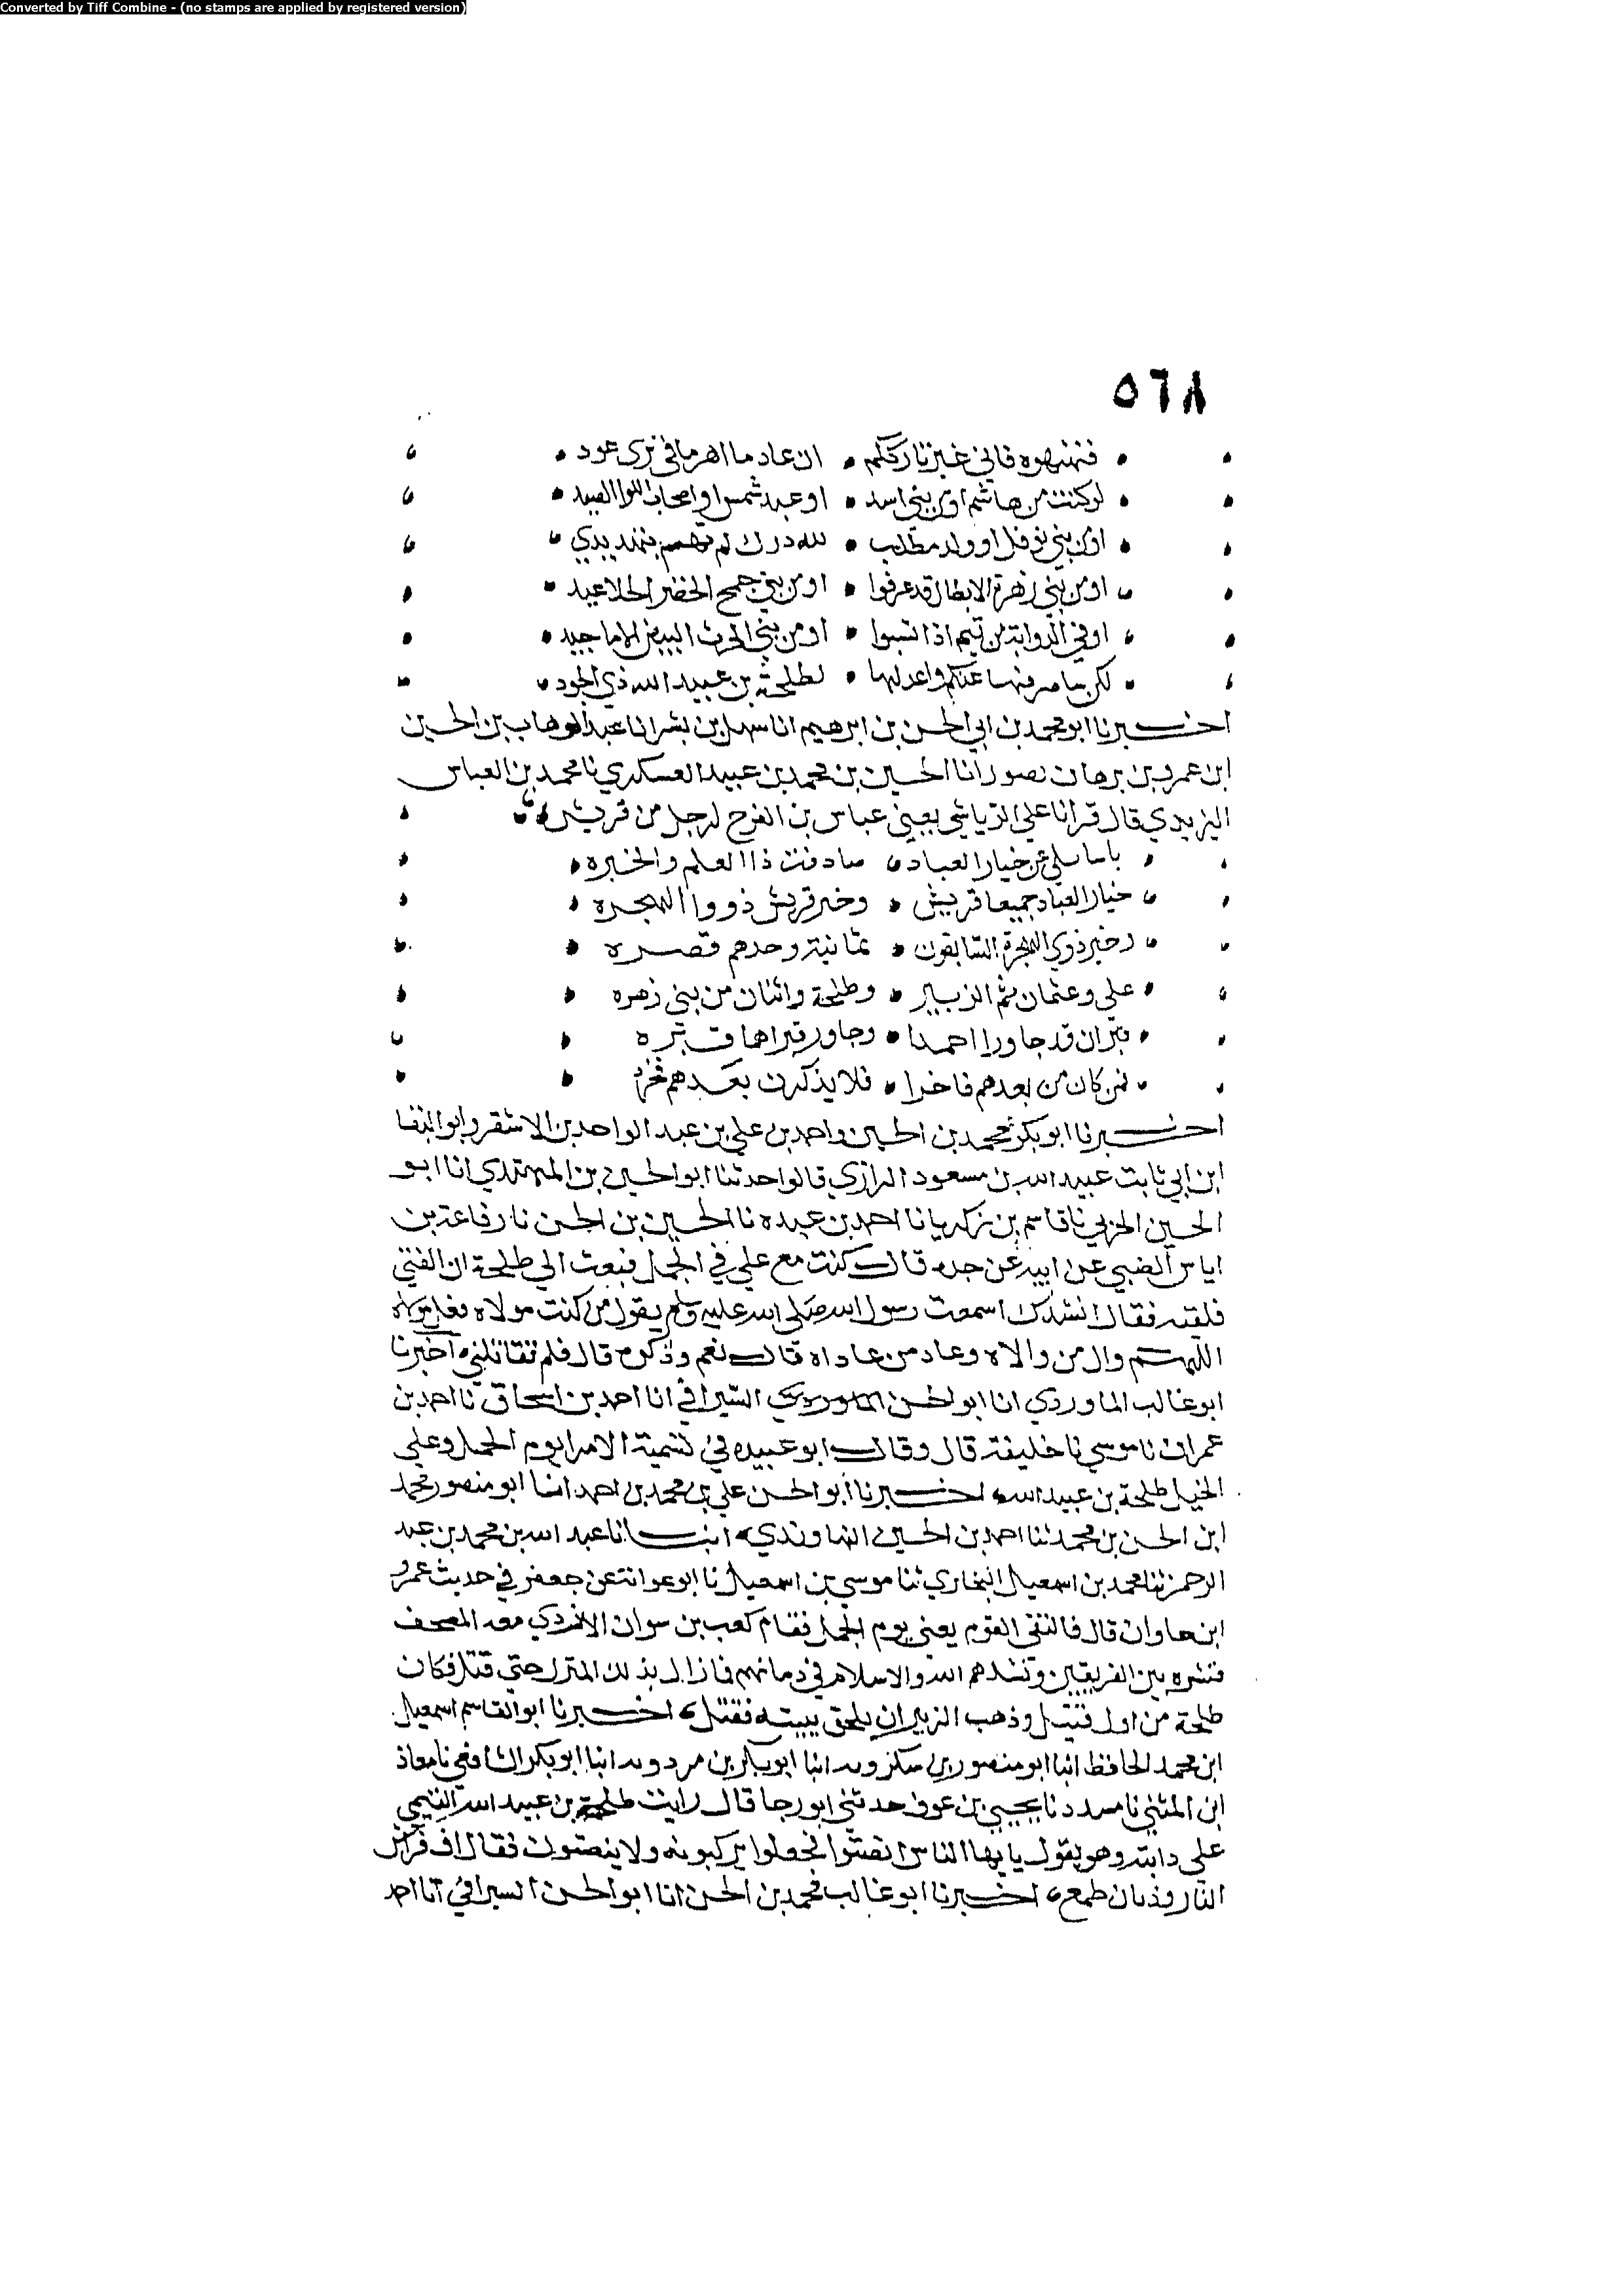 Converted by Tiff Combine - (no stamps are applied by registered version)
٥٦٨
فنهنهوه فاني غير تارككم • ان عاد ما اهر ما في ثرى عود •
لو كنت من هاشم او من بني اسد • او عبد شمس او اصحاب اللوا الصيد •
او من بني نوفل او ولد مطلب • لله درك لم تهمم بتهديدي
او من بني زهرة الابطال قد عرفوا • او من بني جمح الخضر الجلاعيد •
او في الذوابة من تيم اذا نسبوا • او من بني الحرث البيض الاماجيد •
لكن ساصرفها عنكم واعدلها • لطلحة بن عبيد الله ذي الجود
اخبرنا ابو محمد بن ابي الحسن بن ابرهيم انا سهل بن بشر انا عبد الوهاب بن الحسين
ابن عمر بن برهان بصور انا الحسين بن محمد بن عبيد العسكري نا محمد بن العباس
اليزيدي قال قرانا على الرياشي يعني عباس بن الفرح لرجل من قريش
يا سايلي عن خيار العباد صادفت ذا العلم والخبره
خيار العباد جميعا قريش • وخير قريش ذووا الهجره
وخير ذوي الهجرة السابقون • ثمانية وحدهم نصره
علي وعثمان ثم الزبير • وطلحة واثنان من بني زهره
قبران قد جاورا احمدا • وجاور قبراهما قبره
فمن كان من بعدهم فاخرا • فلا يذكرن بعدهم فخره
اخبرنا ابو بكر محمد بن الحسين واحمد بن علي بن عبد الواحد بن الاشقر وابو البقا
ابن ابي ثابت عبيد الله بن مسعود الرازي قالوا حدثنا ابو الحسين بن المهتدي انا ابو
الحسين الحربي نا قاسم بن زكريا نا احمد بن عبده نا الحسين بن الحسن نا رفاعة بن
اياس الضبي عن ابيه عن جده قال كنت مع علي في الجمل فبعث الى طلحة ان القني
فلقيه فقال انشدك اسمعت رسول الله صلى الله عليه وسلم يقول من كنت مولاه فعلي مولاه
اللهم وال من والاه وعاد من عاداه قال نعم وذكره قال فلم تقاتلني اخبرنا
ابو غالب الماوردي انا ابو الحسن السيرافي انا احمد بن اسحاق نا احمد بن
عمران نا موسي نا خليفة قال وقال ابو عبيده في تسمية الامرا يوم الجمل وعلي
الخيل طلحة بن عبيد الله اخبرنا ابو الحسن علي بن محمد بن احمد انا ابو منصور محمد
ابن الحسن بن محمد ثنا احمد بن الحسين النهاوندي انبانا عبد الله بن محمد بن عبد
الرحمن ثنا محمد بن اسمعيل البخاري ثنا موسي بن اسمعيل نا ابو عوانة عن جعفر في حديث عمرو
ابن جاوان قال فالتقى القوم يعني يوم الجمل فقام كعب بن سوار الازدي معه المصحف
فنشره بين الفريقين ونشدهم الله والاسلام في دمائهم فما زال بذلك المنزل حتى قتل فكان
طلحة من اول قتيل وذهب الزبير ان يلحق ببيته فقتل اخبرنا ابو القاسم اسمعيل
ابن محمد الحافظ انبا ابو منصور بن سكرويه انبا ابو بكر بن مردويه انبا ابو بكر الشافعي نا معاذ
ابن المثنى نا مسدد نا يحيي بن عوف حدثني ابو رجا قال رايت طلحة بن عبيد الله التيمي
على دابته وهو يقول يا يها الناس انصتوا فجعلوا يركبونه ولا ينصتون فقال اف فراش
النار وذبان طمع اخبرنا ابو غالب محمد بن الحسن انا ابو الحسن السيرافي انا احمد